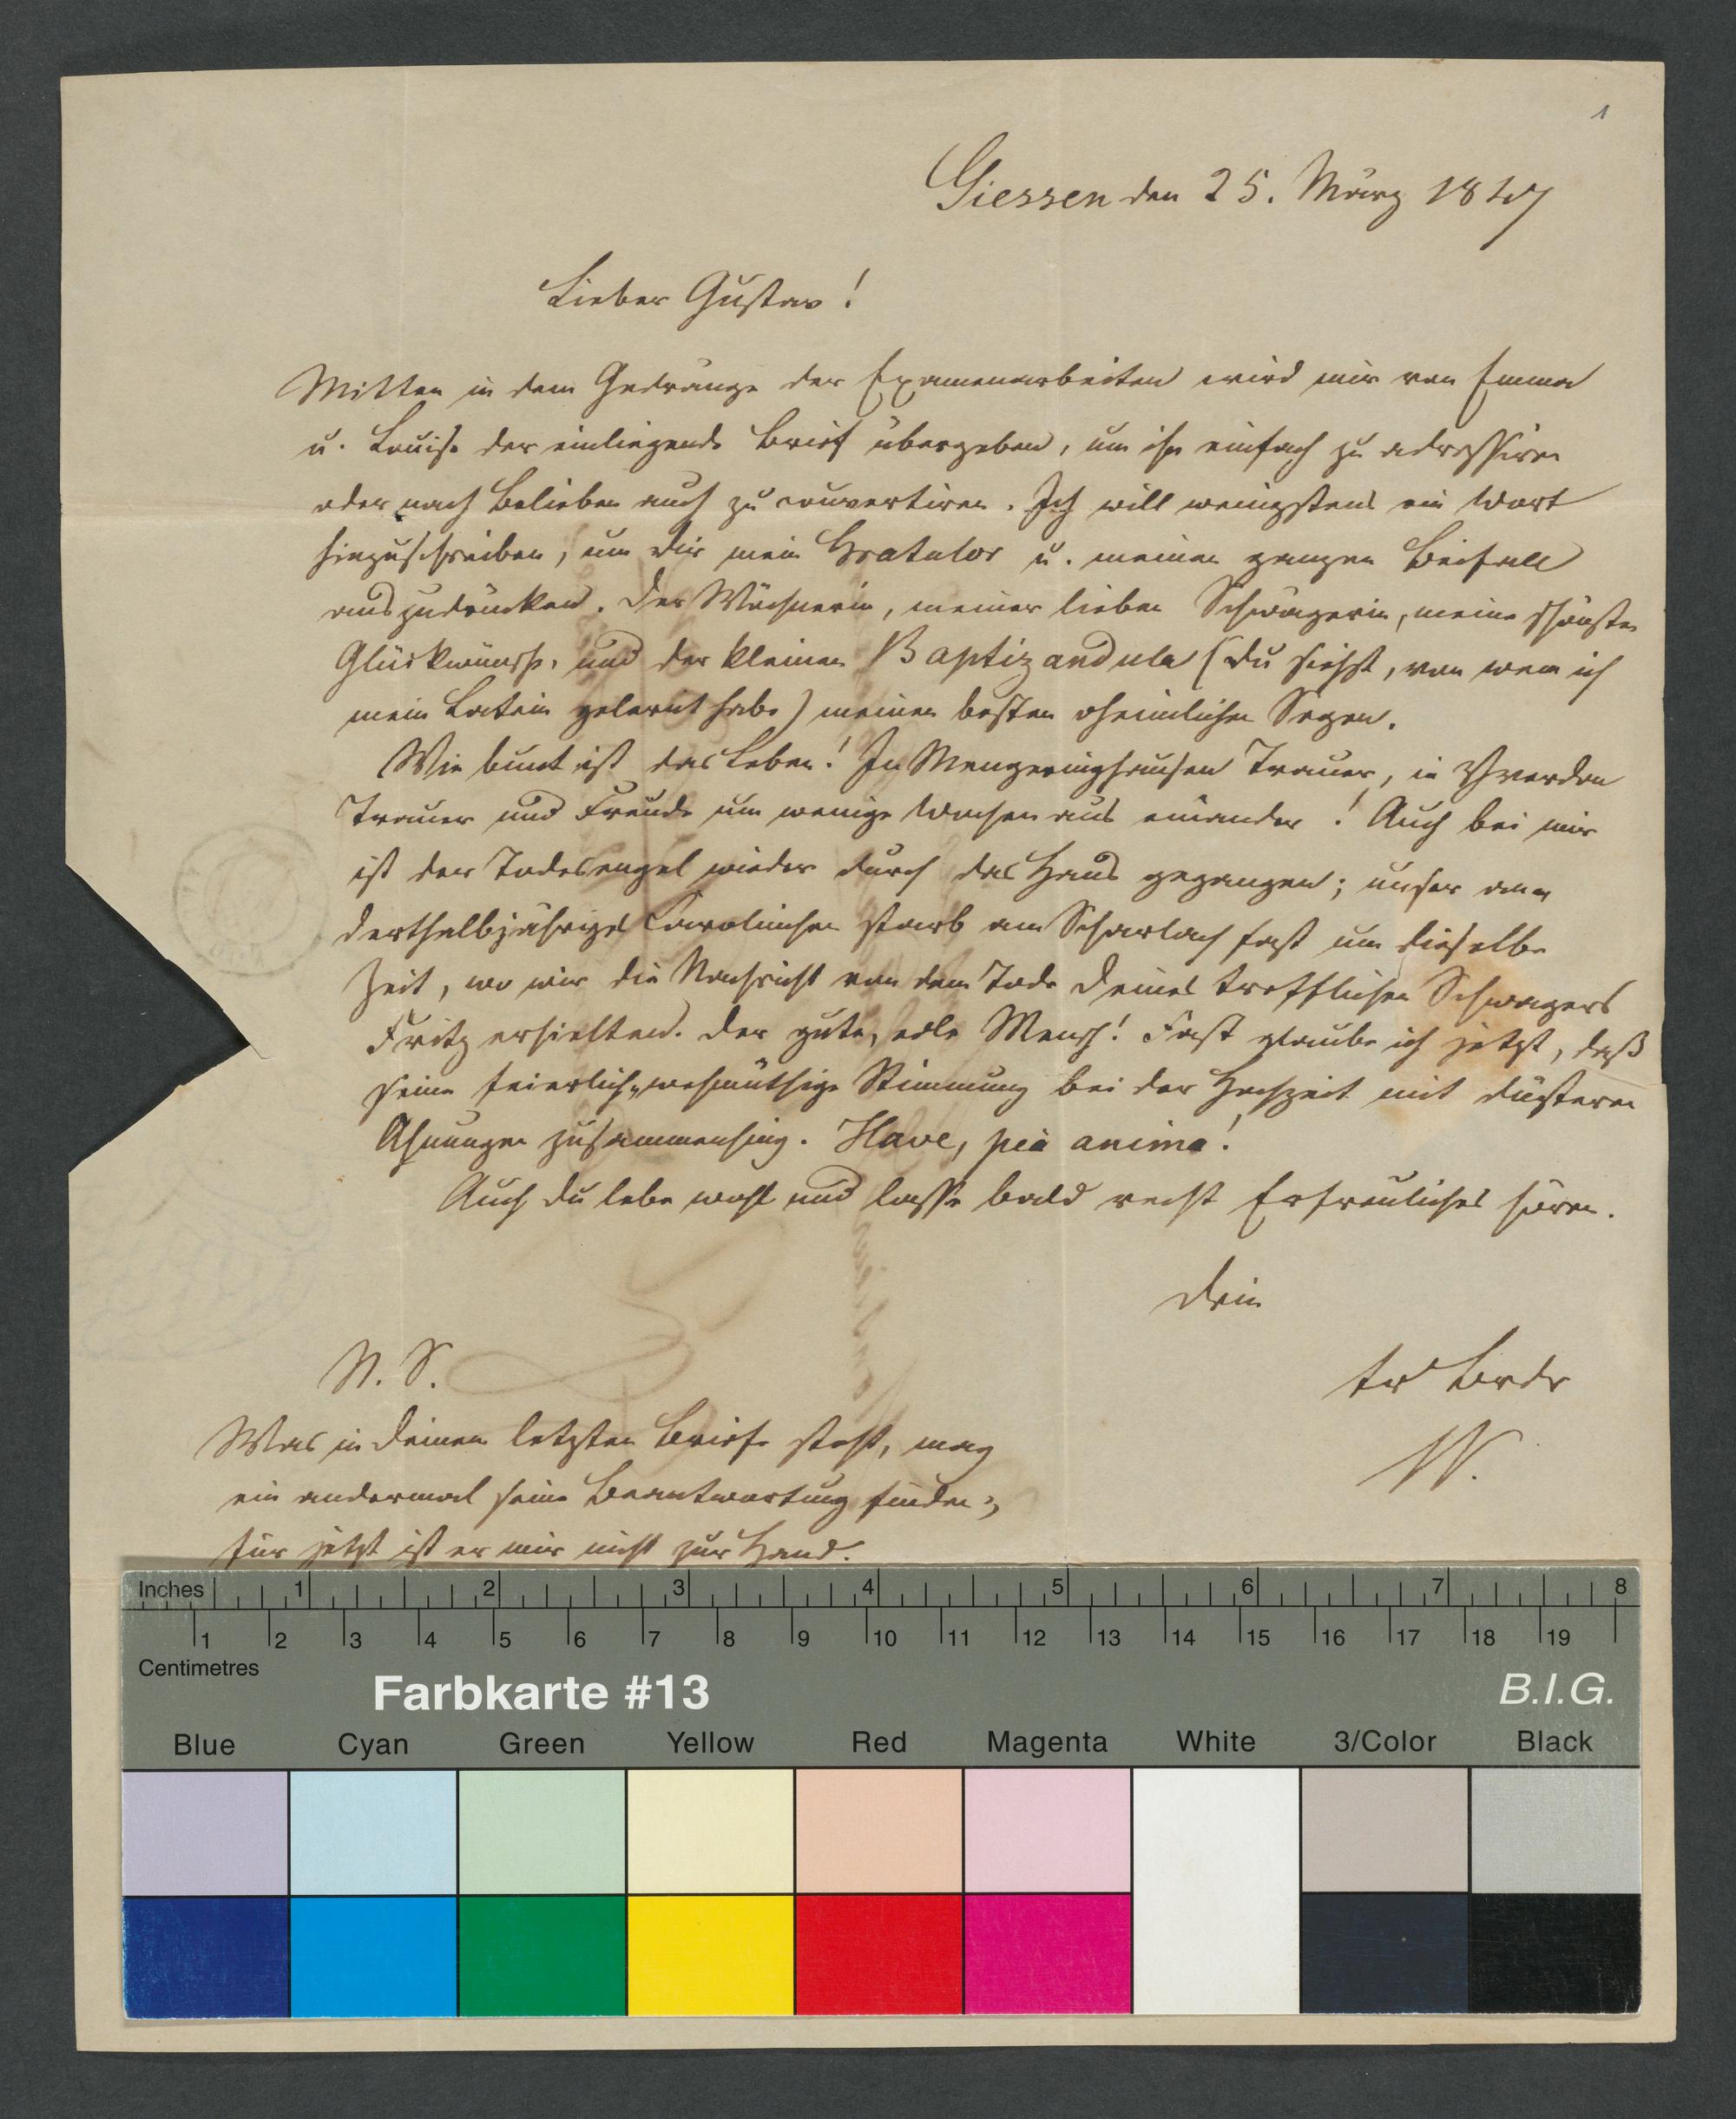 1
Giessen den 25. März 1847
Lieber Gustav!
Mitten in dem Gedränge der Examenarbeiten wird mir von Emma
u. Louise der einliegende Brief übergeben, um ihn einfach zu adressiren
oder nach Belieben auch zu couvertiren. Ich will wenigstens ein Wort
hinzuschreiben, um dir mein Gratulor u. meinen ganzen Beifall
auszudrücken. Der Wöchnerin, meiner lieben Schwägerin, meine schönsten
Glückwünsche, und der kleinen Baptizandula (du siehst, von wem ich
mein Latein gelernt habe) meinen besten oheimlichen Segen.
Wie bunt ist das Leben! In Mengeringhausen Trauer, in
Trauer und Freude um wenige Wochen aus einander! Auch bei mir
ist der Todesengel wieder durch das Haus gegangen; unser an
derthalbjähriges Carolinchen starb am Scharlach fast um dieselbe
Zeit, wo wir die Nachricht von dem Tode deines trefflichen Schwagers
Fritz erhielten. Der gute, edle Mensch! Fast glaube ich jetzt, daß
seine feierlich-wehmüthige Stimmung bei der Hochzeit mit düsteren
Ahnungen zusammenhing. Have, pia anima!
Auch du lebe wohl und lasse bald recht Erfreuliches hören.
Dein
tr Brdr
W.
N. S.
Was in deinem letzten Briefe steht, mag
ein andermal seine Beantwortung finden;
für jetzt ist er mir nicht zur Hand.
Inches 1 2 3 4 5 6 7 8
1 2 3 4 5 6 7 8 9 10 11 12 13 14 15 16 17 18 19
Centimetres
Farbkarte #13 B.I.G.
Blue Cyan Green Yellow Red Magenta White 3/Color Black